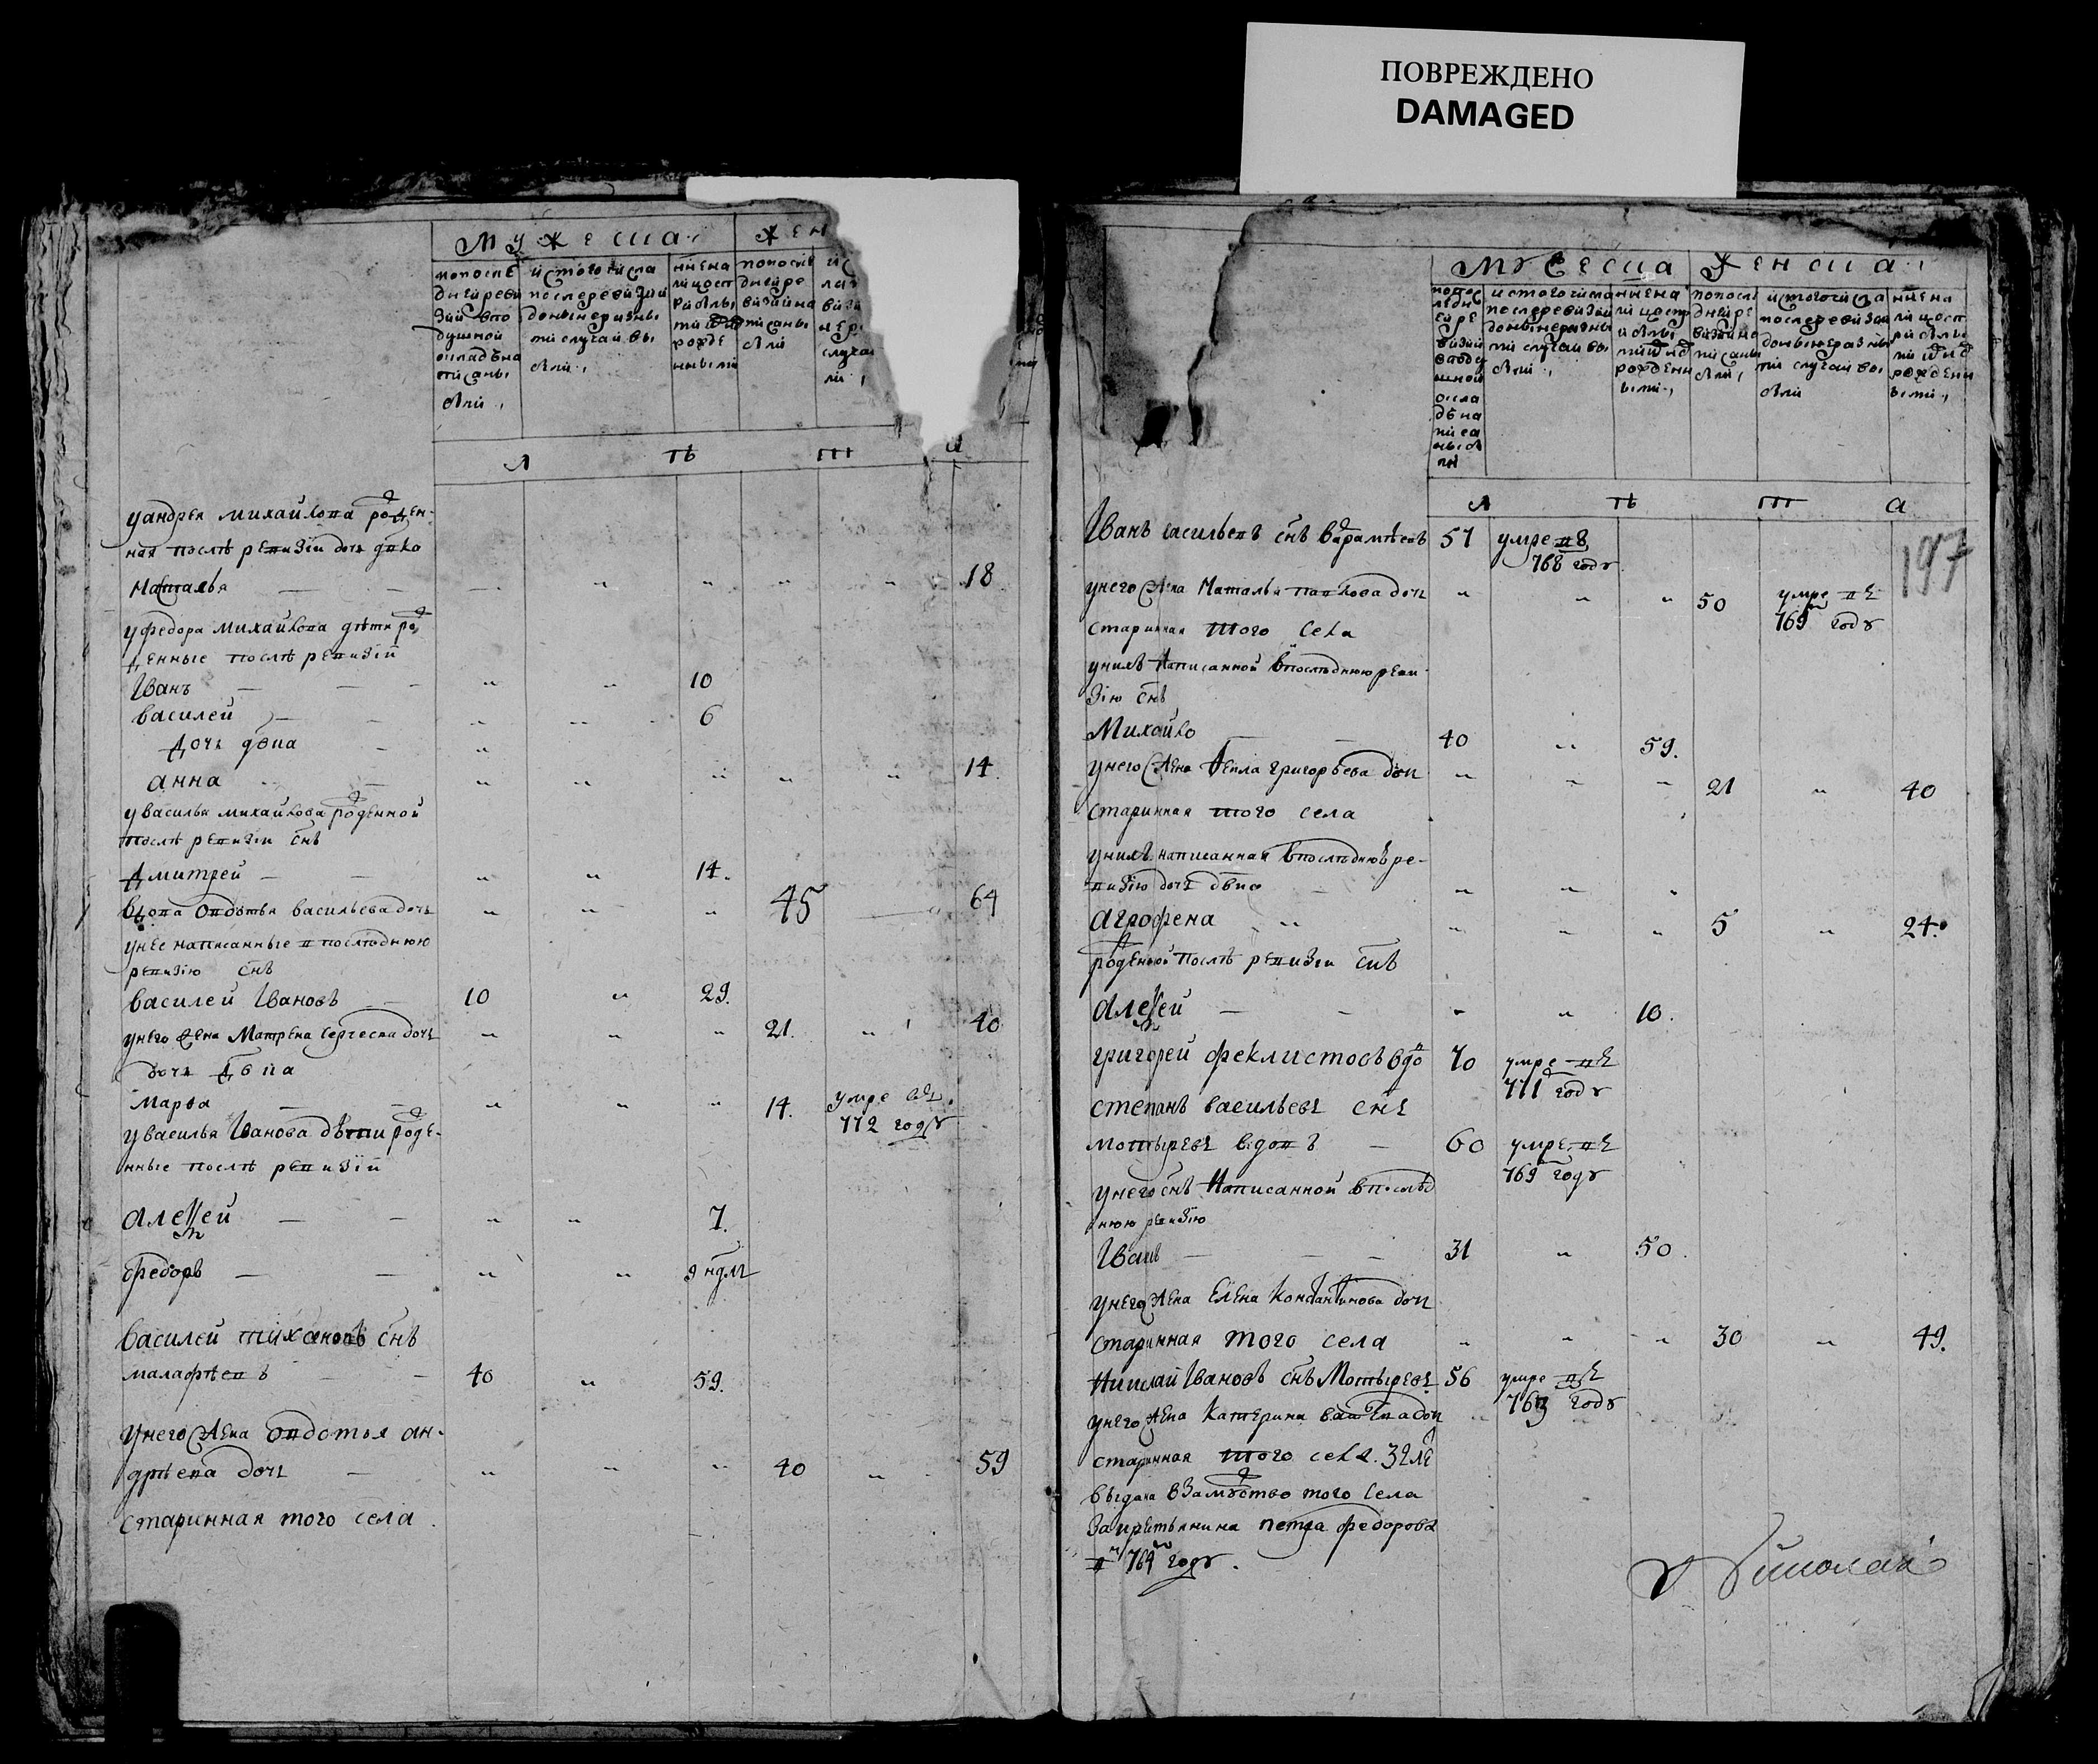 ПОВРЕЖДЕНО
DAMAGED
Мужеска
по после
дней реви
зии в по
душной
окладъ на
писаны
были
ис того числа
после ревизии
до ныне разны
ми случаи вы
были
ныне на
лицо с п
рибылы
ми и
рожде
нными
по после
дней ре
визии на
писаны
были
л ѣ т а
у андрея михайлова рожден
ная послѣ ревизіи дочь дѣвка
Наталья 18
у федора михайлова дѣти ро
жденные послѣ ревизіи
Иванъ 10
василей 6
дочь девка
анна 14
у василья михайлова рожденной
послѣ ревизіи снъ
Дмитрей 14
вдова овдотья васильева дочь 45 64
у нее написанные в последнюю
ревизію снъ
василей Ивановъ 10 29
у него жена Матрена сергеева дочь 21 40
дочь девка
Марфа 14 умре въ
772 году
у василья Иванова дѣти рожде
нные послѣ ревизіи
алексей 7
федоръ 9 нддль
василей тихановъ снъ
малафѣевъ 40 59
у него жена овдотья ан
дрѣева дочь 40 59
старинная того села
Мужеска Женска
по пос
ледн
ей ре
визии
в поду
шной
окла
дѣ на
писа
ны бы
ли
ис того числа
после ревизии
до ныне разны
ми случаи вы
были
ныне на
лицо с пр
ибылы
ми и
рожденн
ыми
по после
дней ре
визии на
писаны
были
ис того числа
после ревизии
до ныне разны
ми случаи вы
были
ныне на
лицо с п
рибылы
ми и
рожденн
ыми
л ѣ т а
197
Иванъ васильевъ снъ 51 умре въ
768 году
у него жена Наталья павлова дочь 50 умре въ
769 году
старинная того села
у нихъ написанной в последнюю реви
зію снъ
Михайло 40 59
у него жена Фекла григорьева дочь 21 40
старинная того села
у нихъ написанная в последнюю ре
визію дочь девка
агрофена 5 24
рожденной послѣ ревизіи снъ
алексей 10
григорей феклистовъ вдо 70 умре въ
771 году
степанъ васильевъ снъ
мотыревъ вдовъ 60 умре въ
769 году
у него снъ написанной в послѣд
нюю ревизію
Иванъ 31 50
у него жена Елена Константинова дочь
старинная того села 30 49
Николай Ивановъ снъ Мотыревъ 56 умре въ
763 году
у него жена Катерина дочь
старинная того села 32 ле
выдана в замужство того села
за крестьянина петра федорова
в 764 году
Николай